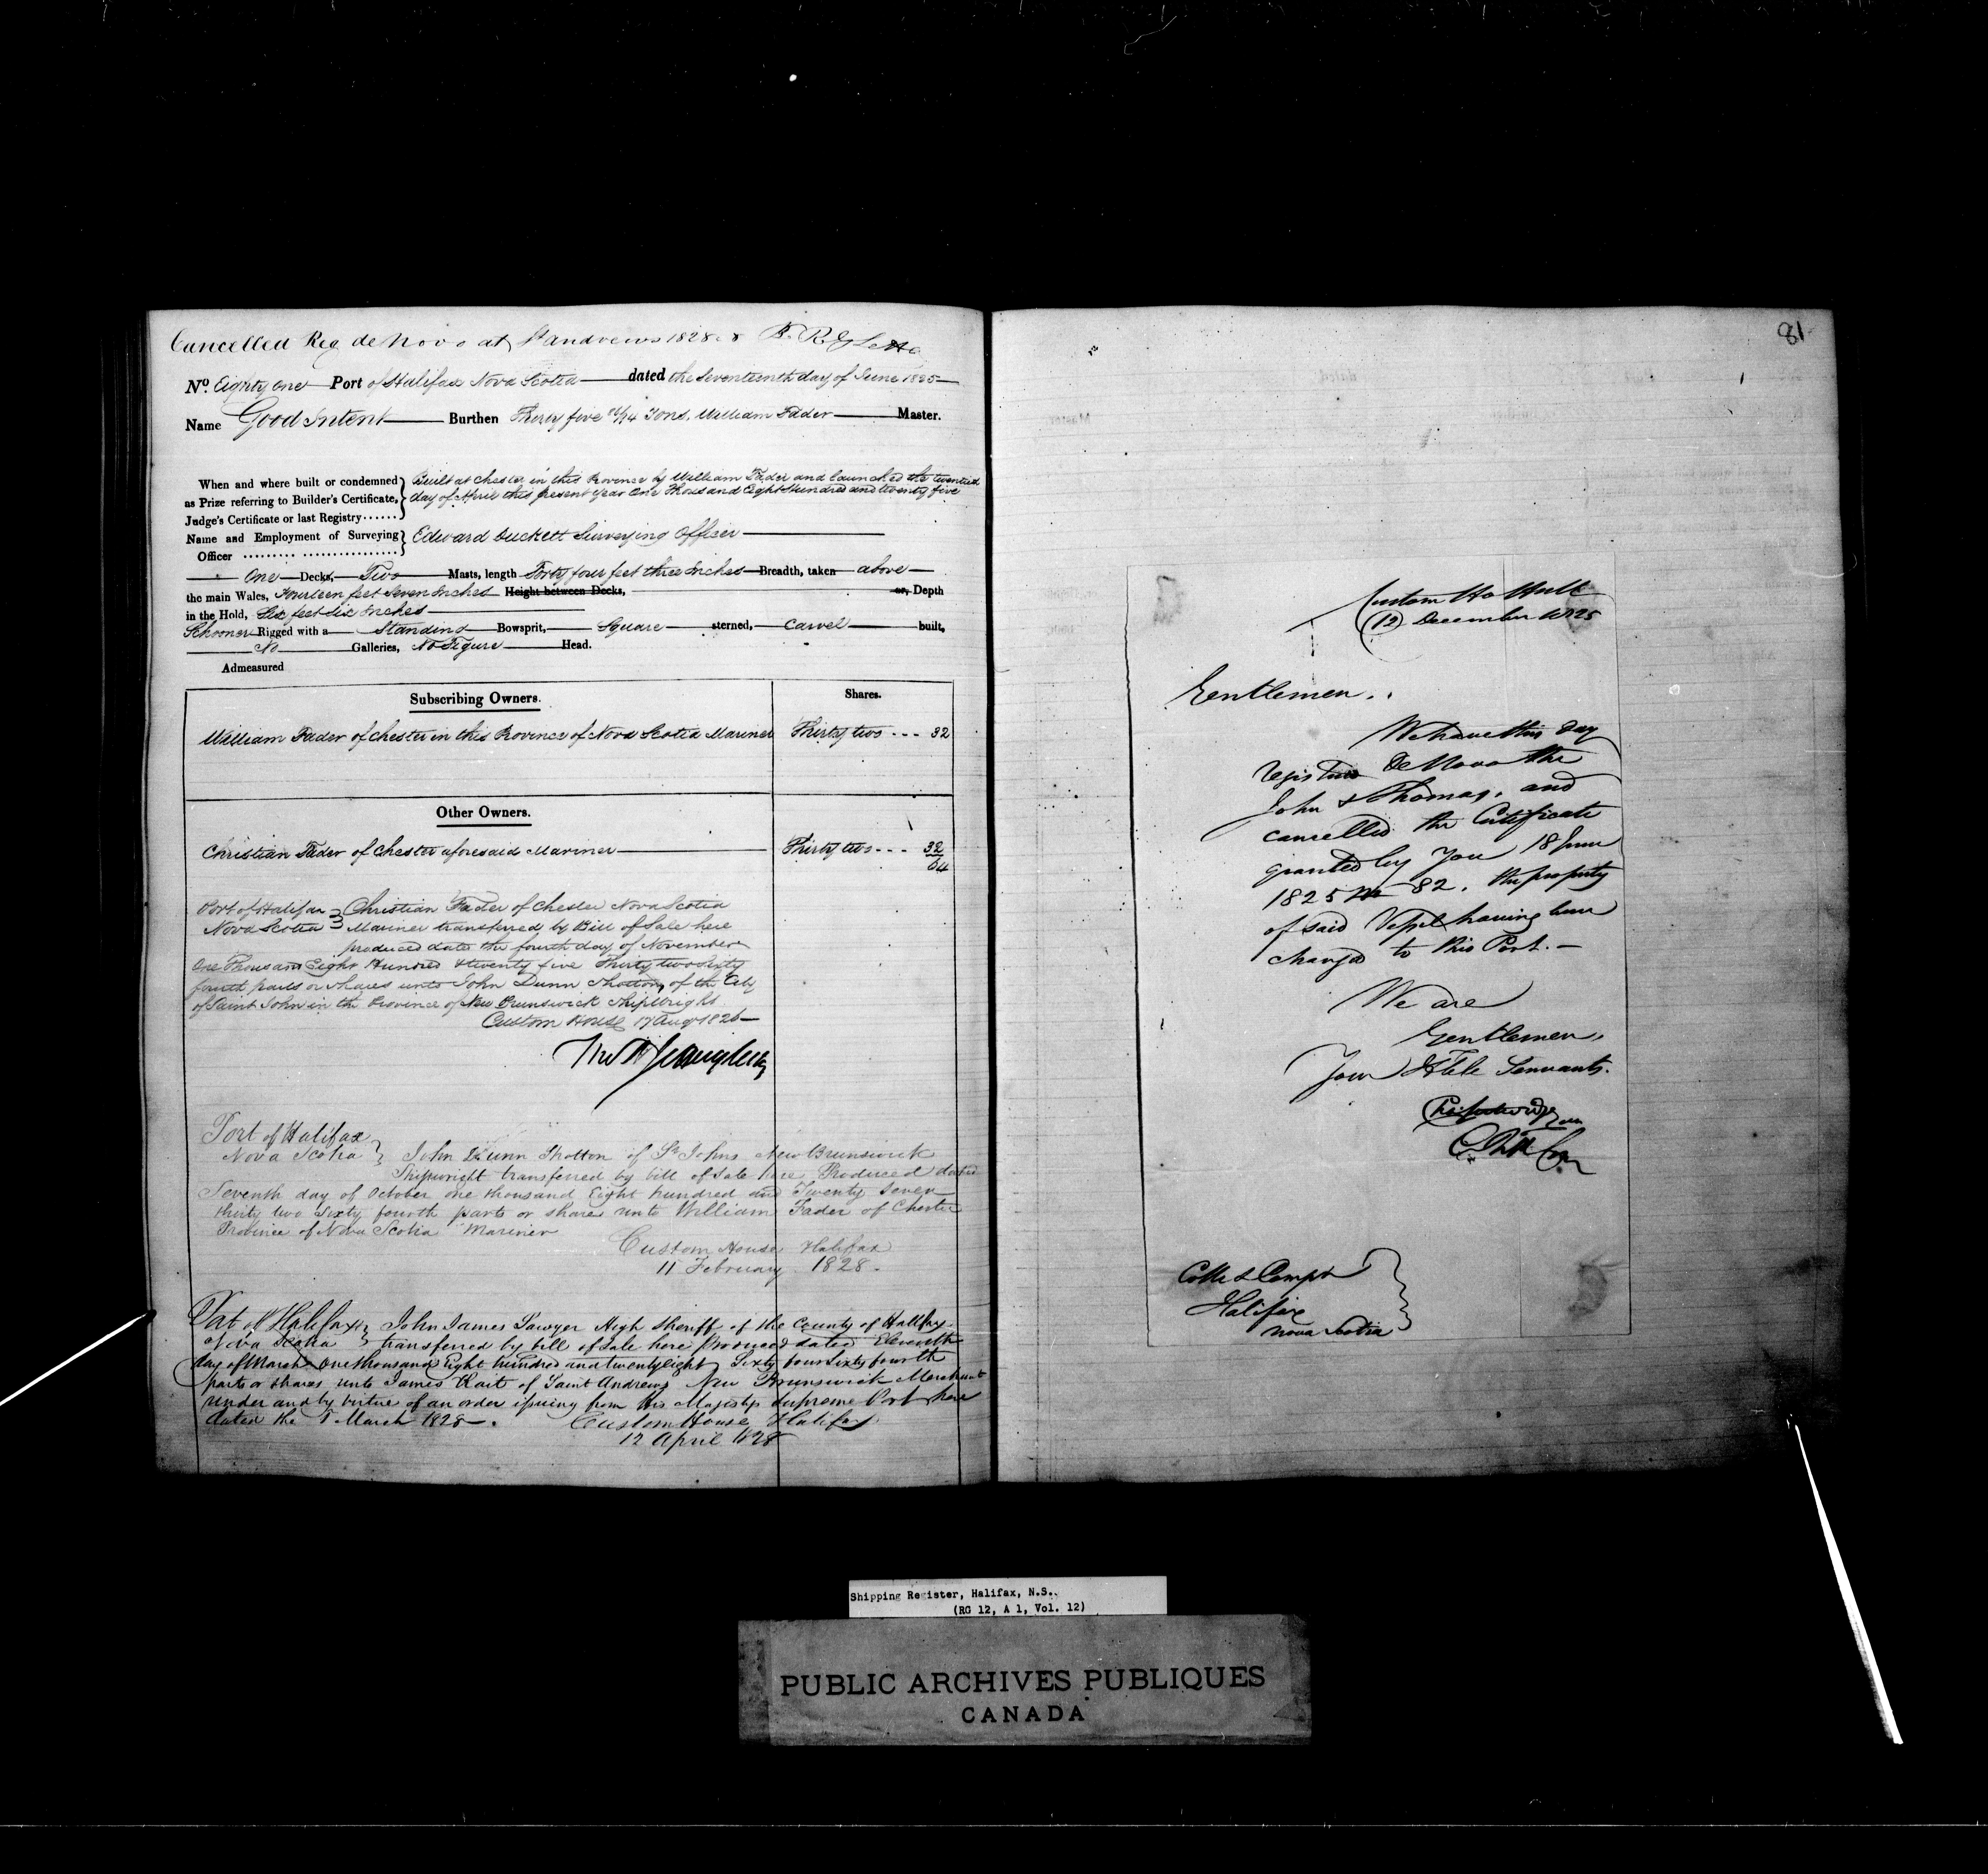 Cancelled Reg de Novo at St Andrews 1828
No. Eighty one Port of Halifax Nova Scotia dated the Seventeenth day of June 1825
Name Good Intent Burthen Thirty five Tons, William Fader Master.
When and where built or condemned
as Prize referring to Builder's Certificate,
Judge's Certificate or last Registry......
Built at Chester in this Province by William Fader and launched the twentieth
day of April this present year One Thousand Eight Hundred and twenty five
Name and Employment of Surveying
Officer
Edward Duckett Surveying Officer
One Decks, Two Masts, length Forty four feet three Inches Breadth, taken above
the main Wales, Fourteen feet Seven Inches Height between Decks, or, Depth
in the Hold, Six feet six Inches
Schooner Rigged with a Standing Bowsprit, Square sterned, Carvel built,
No Galleries, No Figure Head.
Admeasured
Subscribing Owners. Shares.
William Fader of Chester in this Province of Nova Scotia Mariner Thirty two - - - 32
Other Owners.
Christian Fader of Chester aforesaid Mariner Thirty two - - - 32
64
Port of Halifax } Christian Fader of Chester Nova Scotia
Nova Scotia } Mariner transferred by Bill of Sale here
produced dated the fourth day of November
One Thousand Eight Hundred & twenty five Thirty two sixty
fourth parts or shares unto John Dunn Shotton, of the City
of Saint John in the Province of New Brunswick Shipwright
Custom House 17 Augt 1826
Port of Halifax
Nova Scotia } John Dunn Shotton of St Johns New Brunswick
Shipwright transferred by bill of Sale here Produced dated
Seventh day of October one thousand Eight hundred and Twenty Seven
thirty two Sixty fourth parts or shares unto William Fader of Chester
Province of Nova Scotia Mariner
Custom House Halifax
11 February 1828.
Port of Halifax } John James Sawyer High Sheriff of the County of Halifax
Nova Scotia } transferred by bill of Sale here Produced dated Eleventh
day of March One thousand Eight hundred and twenty eight Sixty four Sixty fourth
parts or shares unto James of Saint Andrews New Brunswick Merchant
under and by virtue of an order issuing from his Majestys Supreme Court here
dated the March 1828.
Custom House Halifax
12 April 1828
81
Custom Ho Hull
12 December 1825
Gentlemen,
We have this day
registered De Novo the
John & Thomas, and
cancelled the Certificate
granted by You 18 June
1825 No 82, the property
of said Vessel having been
changed to this Port.
We are
Gentlemen,
Your Hble Servants.
Collr & Compr
Halifax
Nova Scotia
Shipping Register, Halifax, N.S.
(RG 12, A 1, Vol. 12)
PUBLIC ARCHIVES PUBLIQUES
CANADA